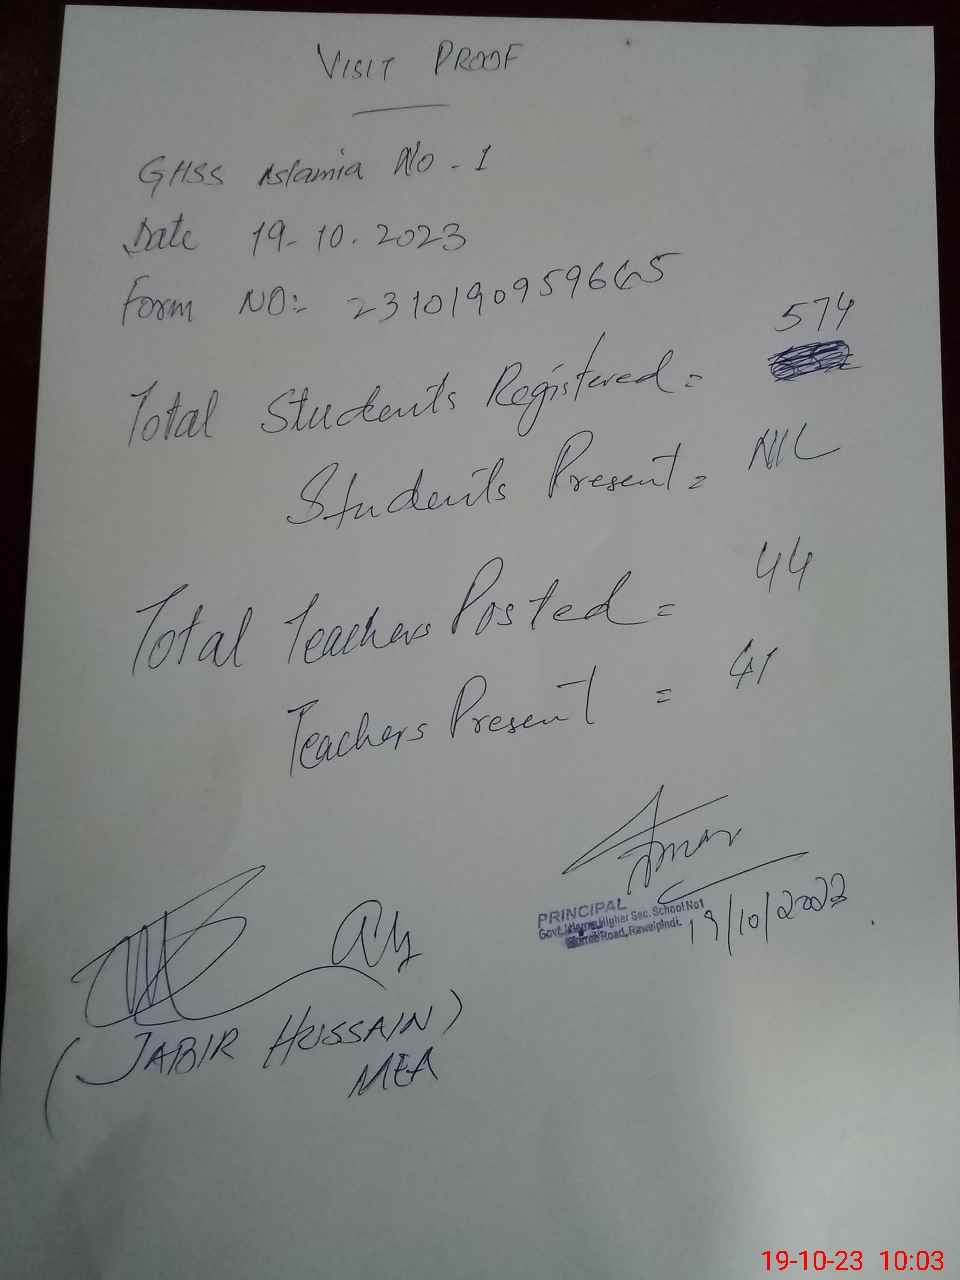 VISIT PROOF
GHSS Islamia No - 1
Date 19-10.2023
Form NO:- 2310190959665
574
Total Students Registered =
Students Present = NIL
Total Teachers Posted = 44
Teachers Present = 41
PRINCIPAL
Govt. Islamia Higher Sec. School No1
Road, Rawalpindi.
19/10/2023
(JABIR HUSSAIN)
MEA
19-10-23 10:03